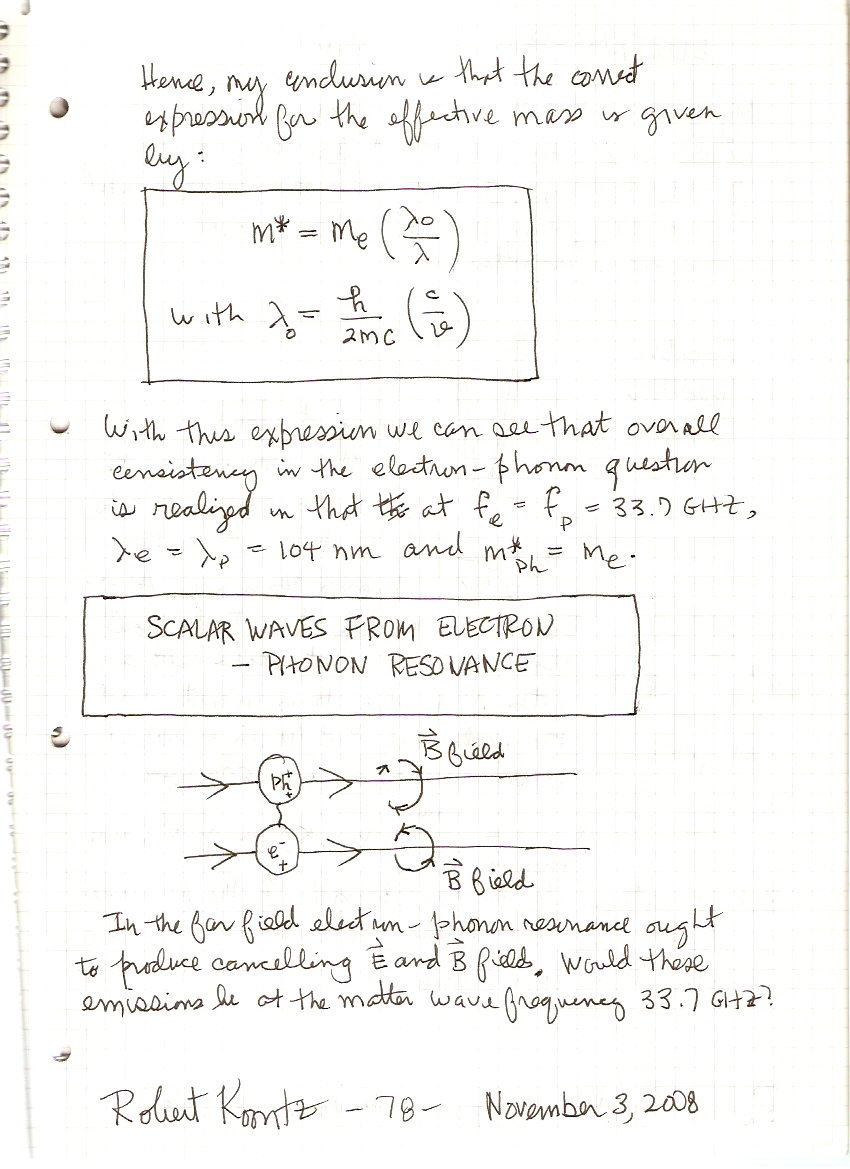 Hence, my conclusion is that the correct
expression for the effective mass is given
by:
m* = me (λo/λ)
with λo = h/2mc (c/v)
With this expression we can see that overall
consistency in the electron-phonon question
is realized in that at fe = fp = 33.7 GHZ,
λe = λp = 104 nm and m*ph = me.
SCALAR WAVES FROM ELECTRON
- PHONON RESONANCE
B field
ph+
e-
B field
In the far field electron-phonon resonance ought
to produce cancelling E and B field. Would these
emissions be at the matter wave frequency 33.7 GHZ?
Robert Koontz - 78 - November 3, 2008